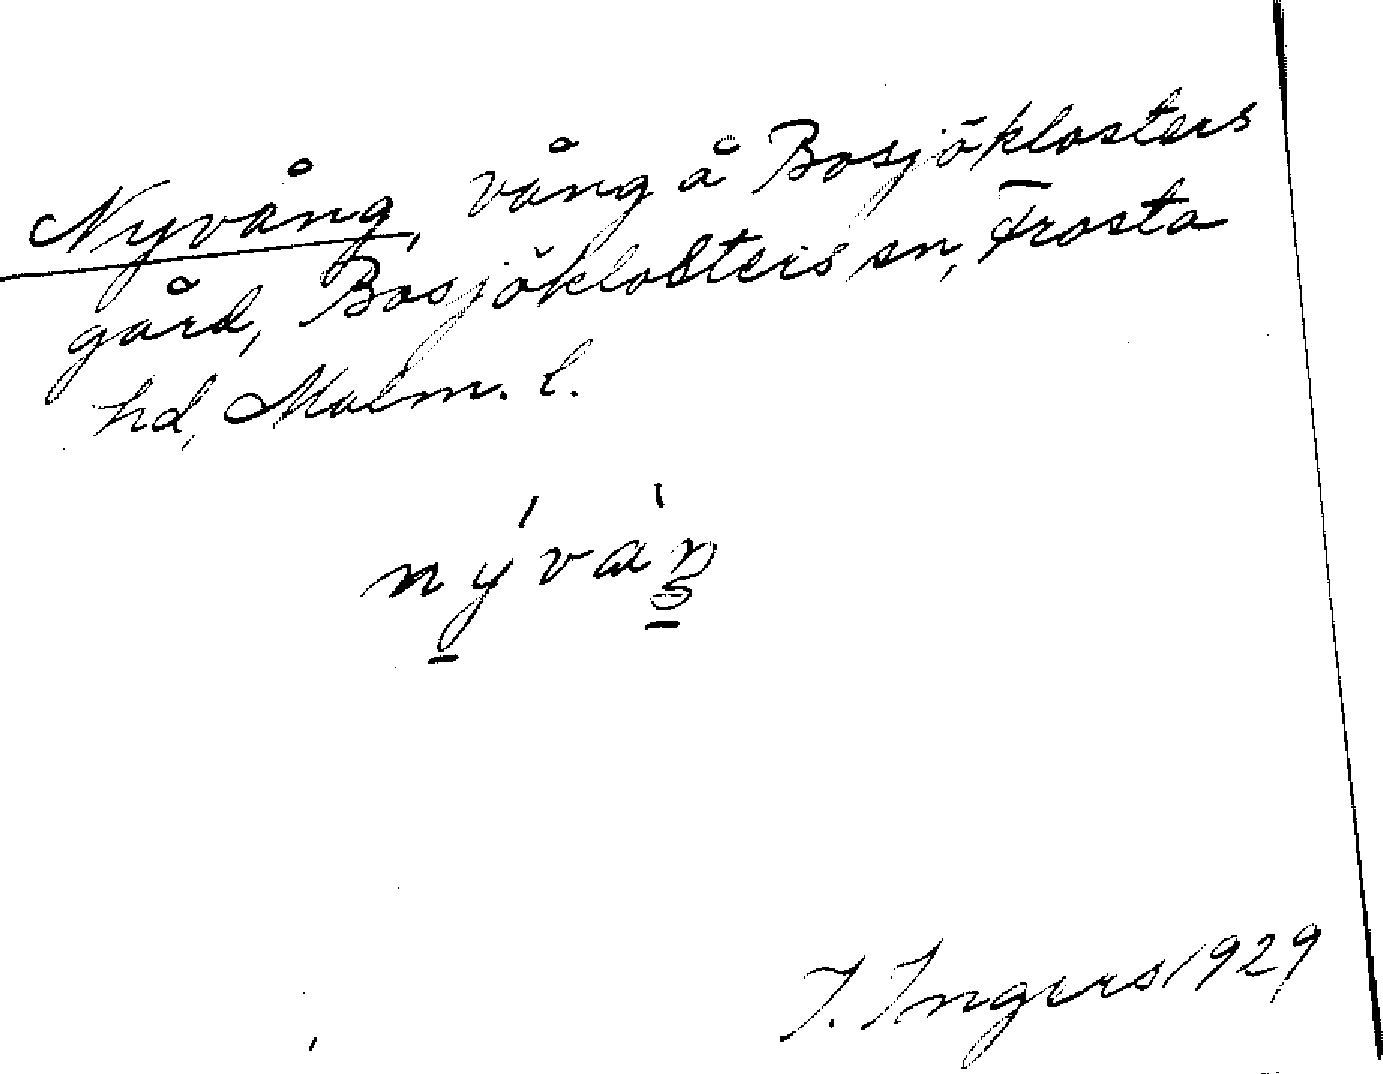 Nyvång, vång å Bosjöklosters
gård, Bosjöklosters sn, Frosta
hd, Malm. l.
nývàŋ
I. Ingers 1929